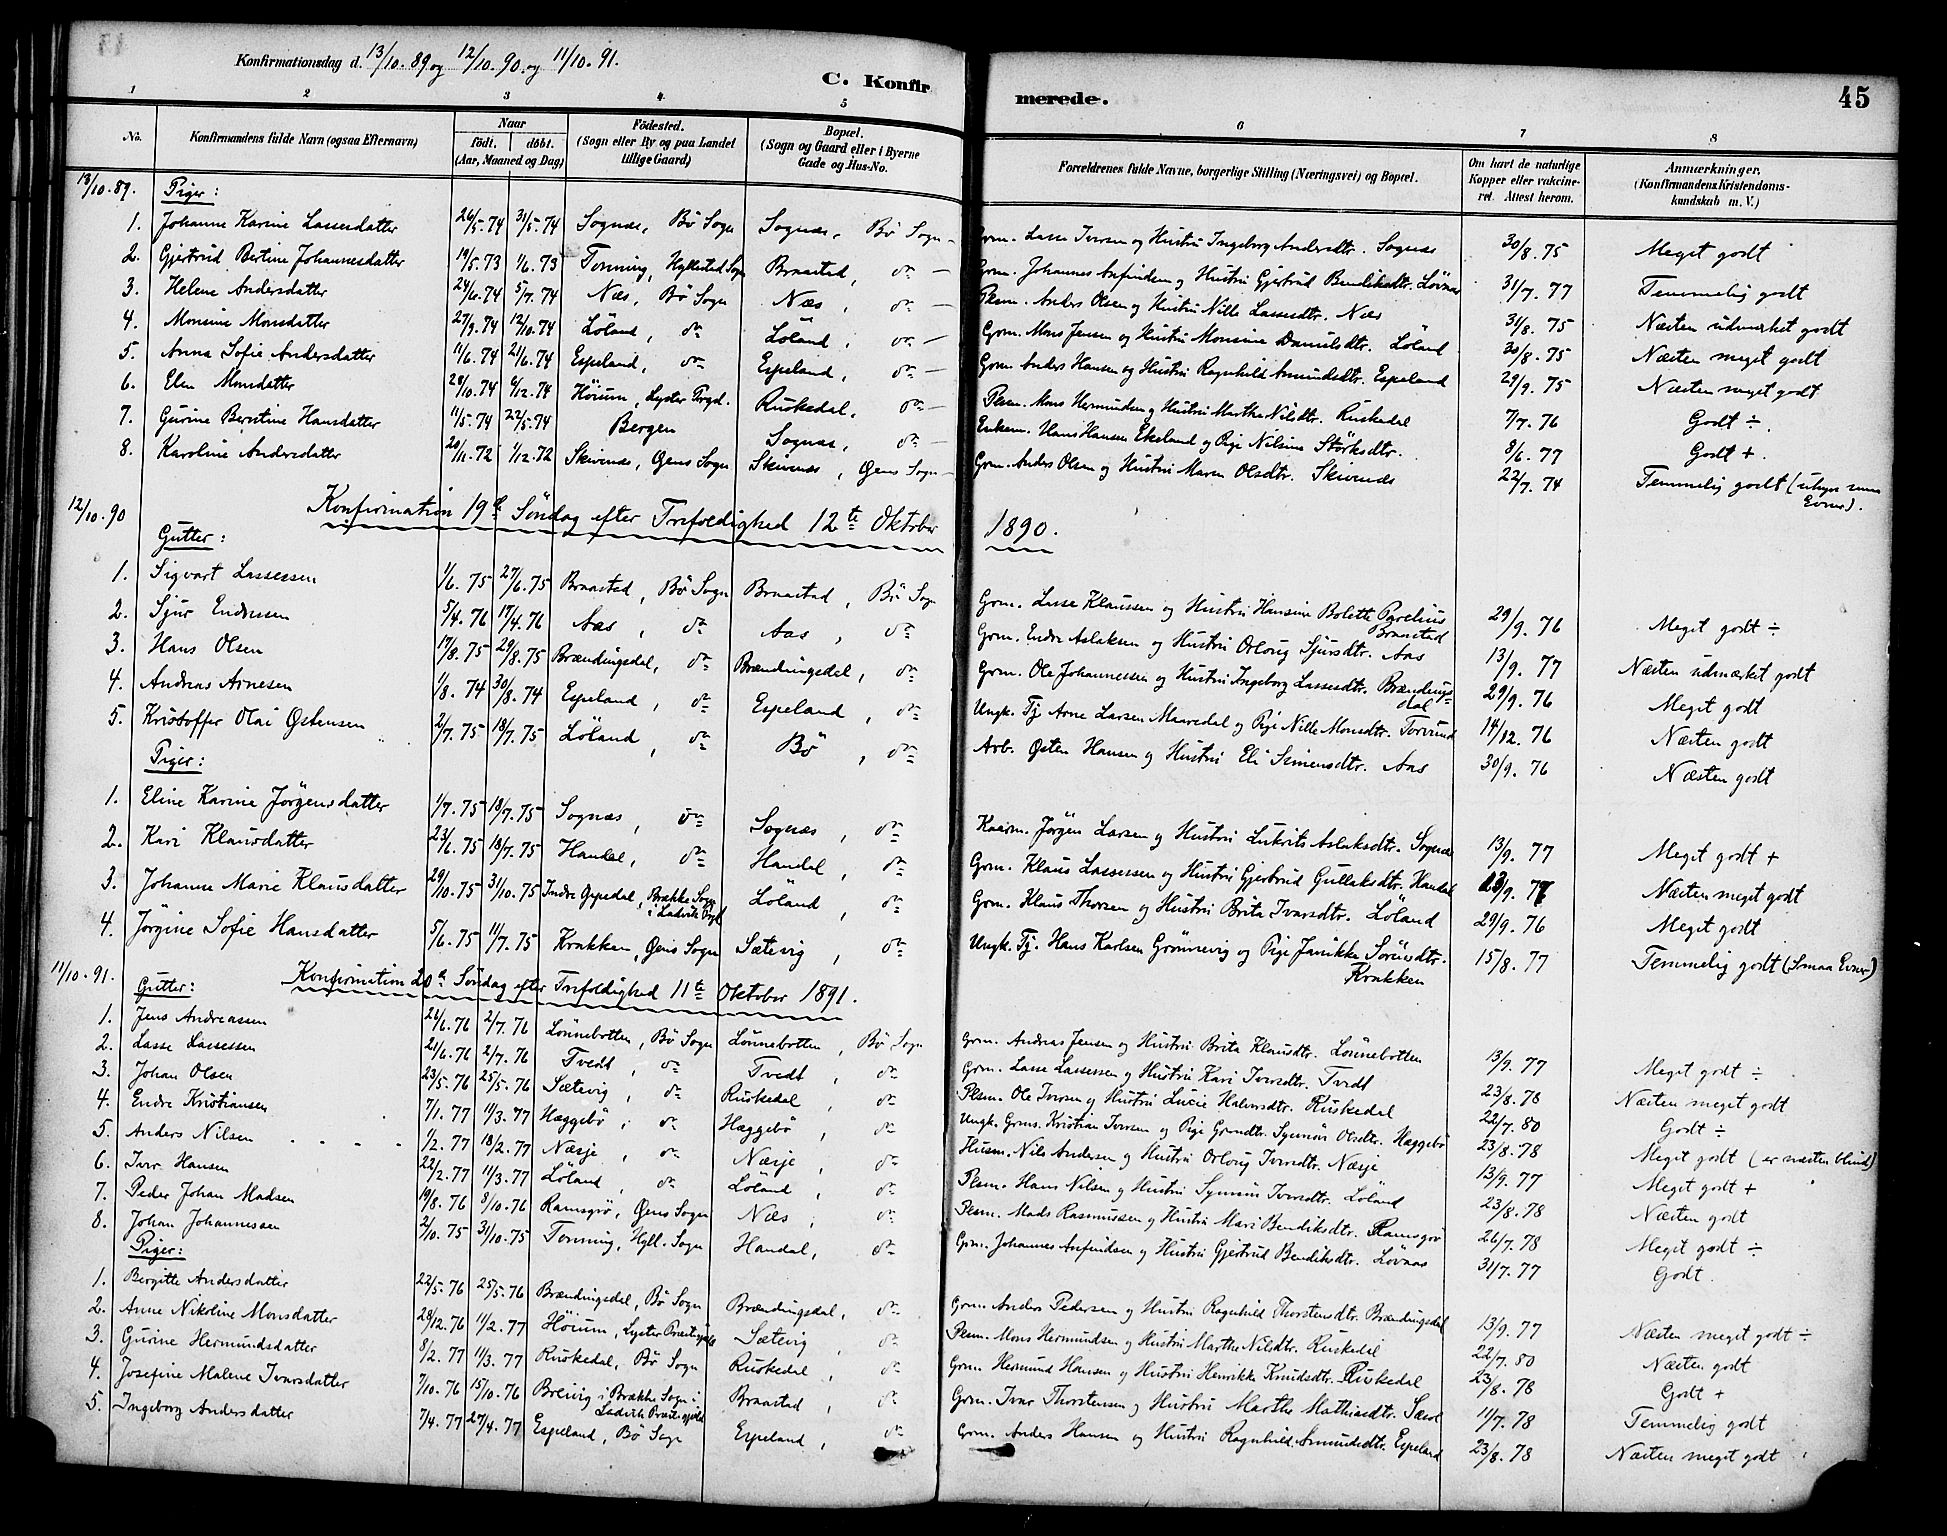 Konfirmationsdag d. 13/10. 89 og 12/10. 90. og 11/10. 91.
C. Konfirmerede. 45
1 2 3 4 5 6 7 8
No. Konfirmandens fulde Navn (ogsaa Efternavn) Naar födt. döbt. (Aar, Maaned og Dag) Födested. (Sogn eller By og paa Landet tillige Gaard) Bopæl. (Sogn og Gaard eller i Byerne Gade og Hus-No. Forældrenes fulde Navne, borgerlige Stilling (Næringsvei) og Bopæl. Om havt de naturlige Kopper eller vakcineret. Attest herom. Anmærkninger. (Konfirmandens Kristendomskundskab m. V.)
13/10. 89. Piger:
1. Johanne Karine Lassesdatter 26/5. 74 31/5. 74 Sognæs, Bö Sogn Sognæs, Bö Sogn Grm. Lasse Iversen og Hustru Ingeborg Andersdtr. Sognæs 30/8. 75 Meget godt
2. Gjertrud Bertine Johannesdatter 19/5. 73 1/6. 73 Tonning, Hyllestad Sogn Braastad, do Grm. Johannes Anfindsen og Hustru Gjertrud Bendiksdtr. Lövnæs 31/7. 77 Temmelig godt
3. Helene Andersdatter 24/6. 74 5/7. 74 Næs, Bö Sogn Næs, do Plsm. Anders Olsen og Hustru Nille Lassesdtr. Næs 31/8. 75 Næsten udmærket godt
4. Monsine Monsdatter 27/9. 74 12/10. 74 Löland, do Löland, do Grm. Mons Jensen og Hustru Monsine Danielsdtr. Löland 30/8. 75 Næsten meget godt
5. Anna Sofie Andersdatter 11/6. 74 21/6. 74 Espeland, do Espeland, do Grm. Anders Hansen og Hustru Ragnhild Amundsdtr. Espeland 29/9. 75 Næsten meget godt
6. Elen Monsdatter 28/10. 74 6/12. 74 Höium, Lyster Prgd. Ruskedal, do Plsm. Mons Hermundsen og Hustru Marthe Nilsdtr. Ruskedal 7/7. 76 Godt ÷.
7. Gurine Berntine Hansdatter 11/5. 74 22/5. 74 Bergen Sognæs, do Enkem. Hans Hansen Ekeland og Pige Nilsine Störksdtr. 8/6. 77 Godt +.
8. Karoline Andersdatter 20/11. 72 1/12. 72 Skivenæs, Öens Sogn Skivenæs, Öens Sogn Grm. Anders Olsen og Hustru Maren Olsdtr. Skivenæs 22/7. 74 Temmelig godt (uhyre smaa Evner).
12/10. 90 Konfirmation 19de Söndag efter Trefoldighed 12te Oktober 1890.
Gutter:
1. Sigvart Lassesen 1/6. 75 27/6. 75 Braastad, Bö Sogn Braastad, Bö Sogn Grm. Lasse Klaussen og Hustru Hansine Bolette Parelius Braastad 29/9. 76 Meget godt ÷
2. Sjur Endresen 5/4. 76 17/4. 76 Aas, do Aas, do Grm. Endre Aslaksen og Hustru Orloug Sjursdtr. Aas 13/9. 77 Næsten udmærket godt
3. Hans Olsen 17/8. 75 29/8. 75 Brændingsdal, do Brændingsdal, do Grm. Ole Johannessen og Hustru Ingeborg Lassesdtr. Brændingsdal 29/9. 76 Meget godt
4. Andreas Arnesen 1/8. 74 30/8. 74 Espeland, do Espeland, do Ungk. Tj. Arne Larsen Maaredal og Pige Nille Monsdtr. Torvund 14/12. 76 Næsten godt
5. Kristoffer Olai Östensen 2/7. 75 18/7. 75 Löland, do Bö, do Arb. Östen Hansen og Hustru Eli Simensdtr. Aas 30/9. 76 Næsten godt
Piger:
1. Eline Karine Jörgensdatter 1/7. 75 18/7. 75 Sognæs, do Sognæs, do Kaarm. Jörgen Larsen og Hustru Lukrits Aslaksdtr. Sognæs 13/9. 77 Meget godt +
2. Kari Klausdatter 23/6. 75 18/7. 75 Handal, do Handal, do Grm. Klaus Lassessen og Hustru Gjertrud Gullaksdtr. Handal 23/9. 77 Næsten meget godt
3. Johanne Marie Klausdatter 29/10. 75 31/10. 75 Indre Oppedal, Brække Sogn i Ladvik Prgd Löland, do Grm. Klaus Thorsen og Hustru Brita Ivarsdtr. Löland 29/9. 76 Meget godt
4. Jörgine Sofie Hansdatter 5/6. 75 11/7. 75 Krakken, Öens Sogn Sætevig, do Ungk. Tj. Hans Karlsen Grönnevig og Pige Janikke Sörensdtr. Krakken 15/8. 77 Temmelig godt (Smaa Evner)
11/10. 91. Konfirmation 20de Söndag efter Trefoldighed 11te Oktober 1891.
Gutter:
1. Jens Andreassen 26/6. 76 2/7. 76 Lönnebotten, Bö Sogn Lönnebotten, Bö Sogn Grm. Andreas Jensen og Hustru Brita Klausdtr. Lönnebotten 13/9. 77 Meget godt ÷
2. Lasse Lassessen 21/6. 76 2/7. 76 Tvedt, do Tvedt, do Grm. Lasse Lassessen og Hustru Kari Iversdtr. Tvedt 23/8. 78 Næsten meget godt
3. Johan Olsen 23/5. 76 25/5. 76 Sætevig, do Ruskedal, do Plsm. Ole Iversen og Hustru Lucie Halvorsdtr. Ruskedal 22/7. 80 Godt ÷
4. Endre Kristiansen 7/1. 77 11/3. 77 Hæggebö, do Hæggebö, do Ungk. Grms. Kristian Iversen og Pige Grmdtr. Synnöv Olsdtr. Hæggebö 23/8. 78 Meget godt (er næsten blind)
5. Anders Nilsen 1/2. 77 18/2. 77 Næsje, do Næsje, do Husm. Nils Andersen og Hustru Orloug Iversdtr. Næsje 13/9. 77 Meget godt +
6. Iver Hansen 22/2. 77 11/3. 77 Löland, do Löland, do Plsm. Hans Nilsen og Hustru Synnöv Iversdtr. Löland 23/8. 78 Næsten godt
7. Peder Johan Madsen 19/8. 76 8/10. 76 Ramsgrö, Öens Sogn Næs, do Plsm. Mads Rasmussen og Hustru Mari Bendiksdtr. Ramsgrö 26/7. 78 Meget godt ÷
8. Johan Johannessen 2/10. 75 31/10. 75 Tonning, Hyll. Sogn Handal, do Grm. Johannes Anfindsen og Hustru Gjertrud Bendiksdtr. Lövnæs 31/7. 77 Godt.
Piger:
1. Bergitte Andersdatter 22/5. 76 25/5. 76 Brændingsdal, Bö Sogn Brændingsdal, do Grm. Anders Pedersen og Hustru Ragnhild Thorstensdtr. Brændingsdal 13/9. 77 Næsten meget godt ÷
2. Anne Nikoline Monsdatter 28/12. 76 11/2. 77 Höium, Lyster Præstegjeld Sætevig, do Plsm. Mons Hermundsen og Hustru Marthe Nilsdtr. Ruskedal 22/7. 80 Næsten godt
3. Gurine Hermundsdatter 8/2. 77 11/3. 77 Ruskedal, Bö Sogn Ruskedal, do Grm. Hermund Hansen og Hustru Henrikke Knudsdtr. Ruskedal 23/8. 78 Godt +
4. Josefine Malene Ivarsdatter 7/10. 76 15/10. 76 Breivig i Brække Sogn i Ladvik Præstegjeld Braastad, do Grm. Ivar Thorstensen og Hustru Marthe Mathiasdtr. 11/7. 78 Temmelig godt
5. Ingeborg Andersdatter 7/4. 77 27/4. 77 Espeland, Bö Sogn Espeland, do Grm. Anders Hansen og Hustru Ragnhild Amundsdtr. Espeland 23/8. 78 Næsten meget godt